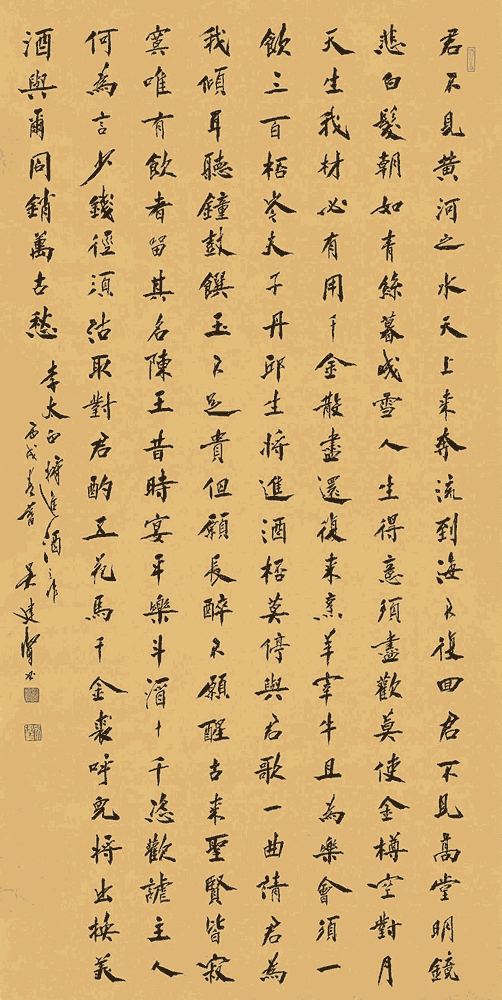 君不見黃河之水天上來奔流到海不復回君不見高堂明鏡
悲白髮朝如青絲暮成雪人生得意須盡歡莫使金樽空對月
天生我材必有用千金散盡還復來烹羊宰牛且為樂會須一
飲三百桮岑夫子丹邱生將進酒桮莫停與君歌一曲請君為
我傾耳聽鐘鼓饌玉不足貴但願長醉不願醒古來聖賢皆寂
寞唯有飲者留其名陳王昔時宴平樂斗酒十千恣歡謔主人
何為言少錢徑須沽取對君酌五花馬千金裘呼兒將出換美
酒與爾同銷萬古愁
李太白將進酒
丙戌春
吳建賢